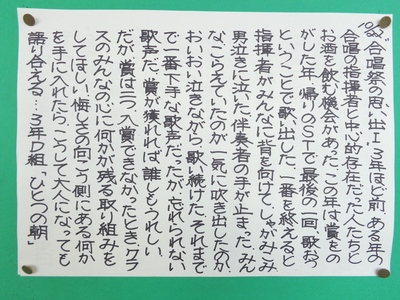 10/22
「合唱祭の思い出」Ⅰ 3年ほど前、ある年の
合唱の指揮者と中心的存在だった人たちと
お酒を飲む機会があった。この年は賞をの
がした年。帰りのSTで最後の一回、歌おう
ということで歌い出した。一番を終えると
指揮者がみんなに背を向けて、しゃがみこみ
男泣きに泣いた。伴奏者の手が止まった。みん
なこらえていたのが、一気に吹き出したのか、
おいおい泣きながら、歌い続けた。それまで
で一番下手な歌声だったが、忘れられない
歌声だ。賞が獲れれば、誰しもうれしい。
だが、賞は三つ。入賞できなかったとき、クラ
スのみんなの心に何かが残る取り組みを
してほしい。悔しさの向こう側にある何か
を手に入れたら、こうして大人になっても
語り合える…3年D組「ひとつの朝」